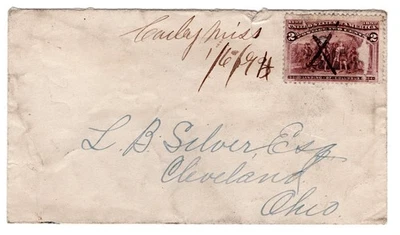 Miss
UNITED STATES OF AMERICA
2 2
LANDING OF COLUMBUS
L. B. Silver, Esq
Cleveland
Ohio.